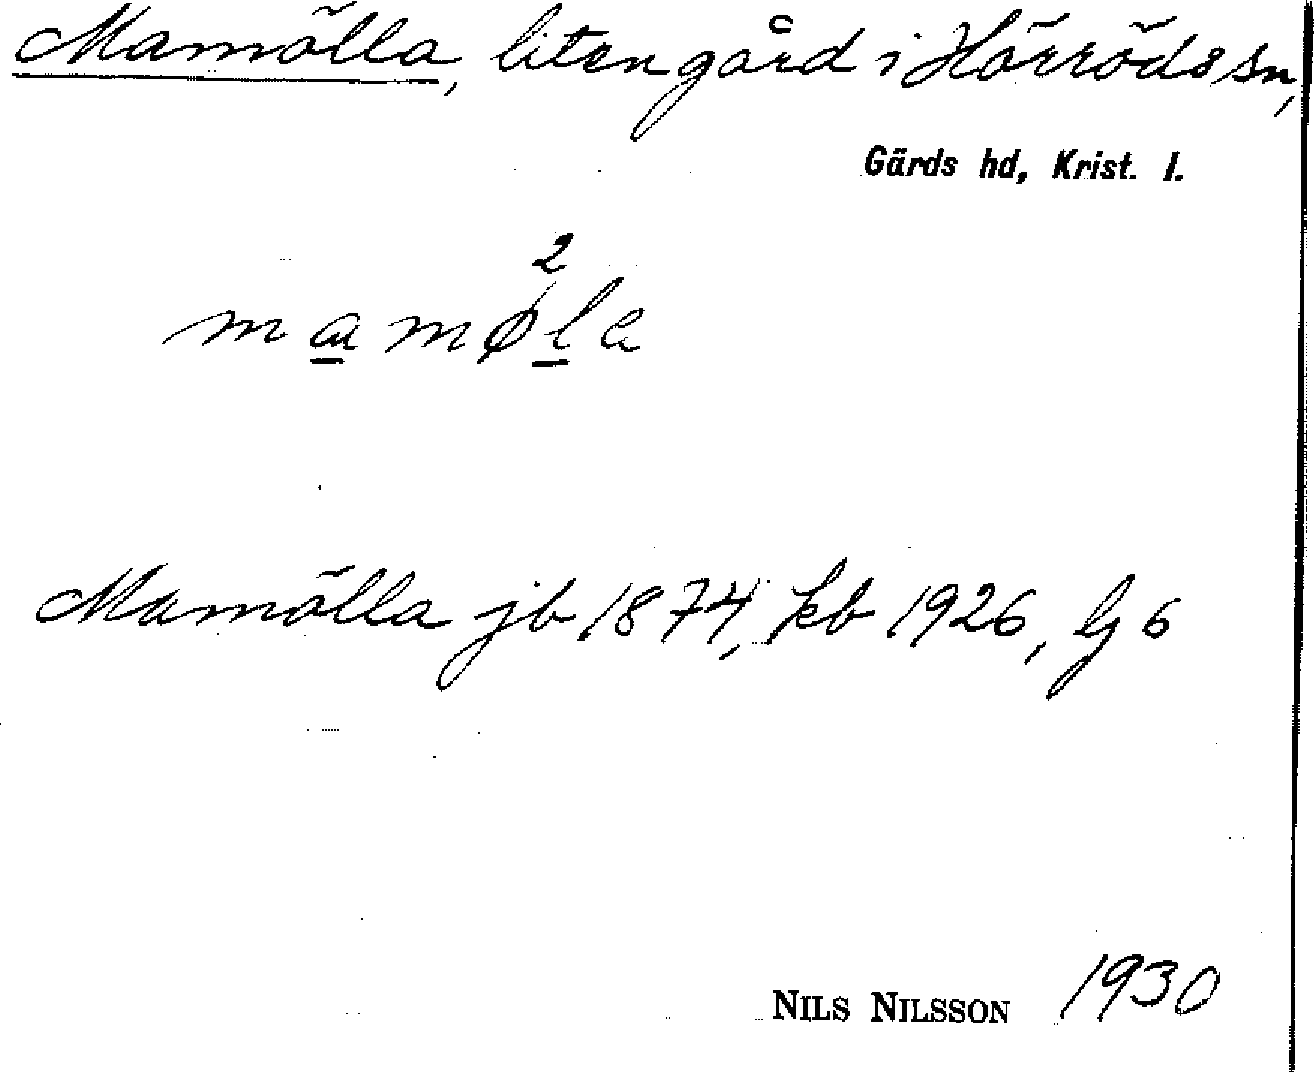 Mamölla, liten gård i Hörröds sn,
Gärds hd, Krist. l.
2
mamøla
Mamölla jb 1874, kb 1926, G 6
NILS NILSSON 1930